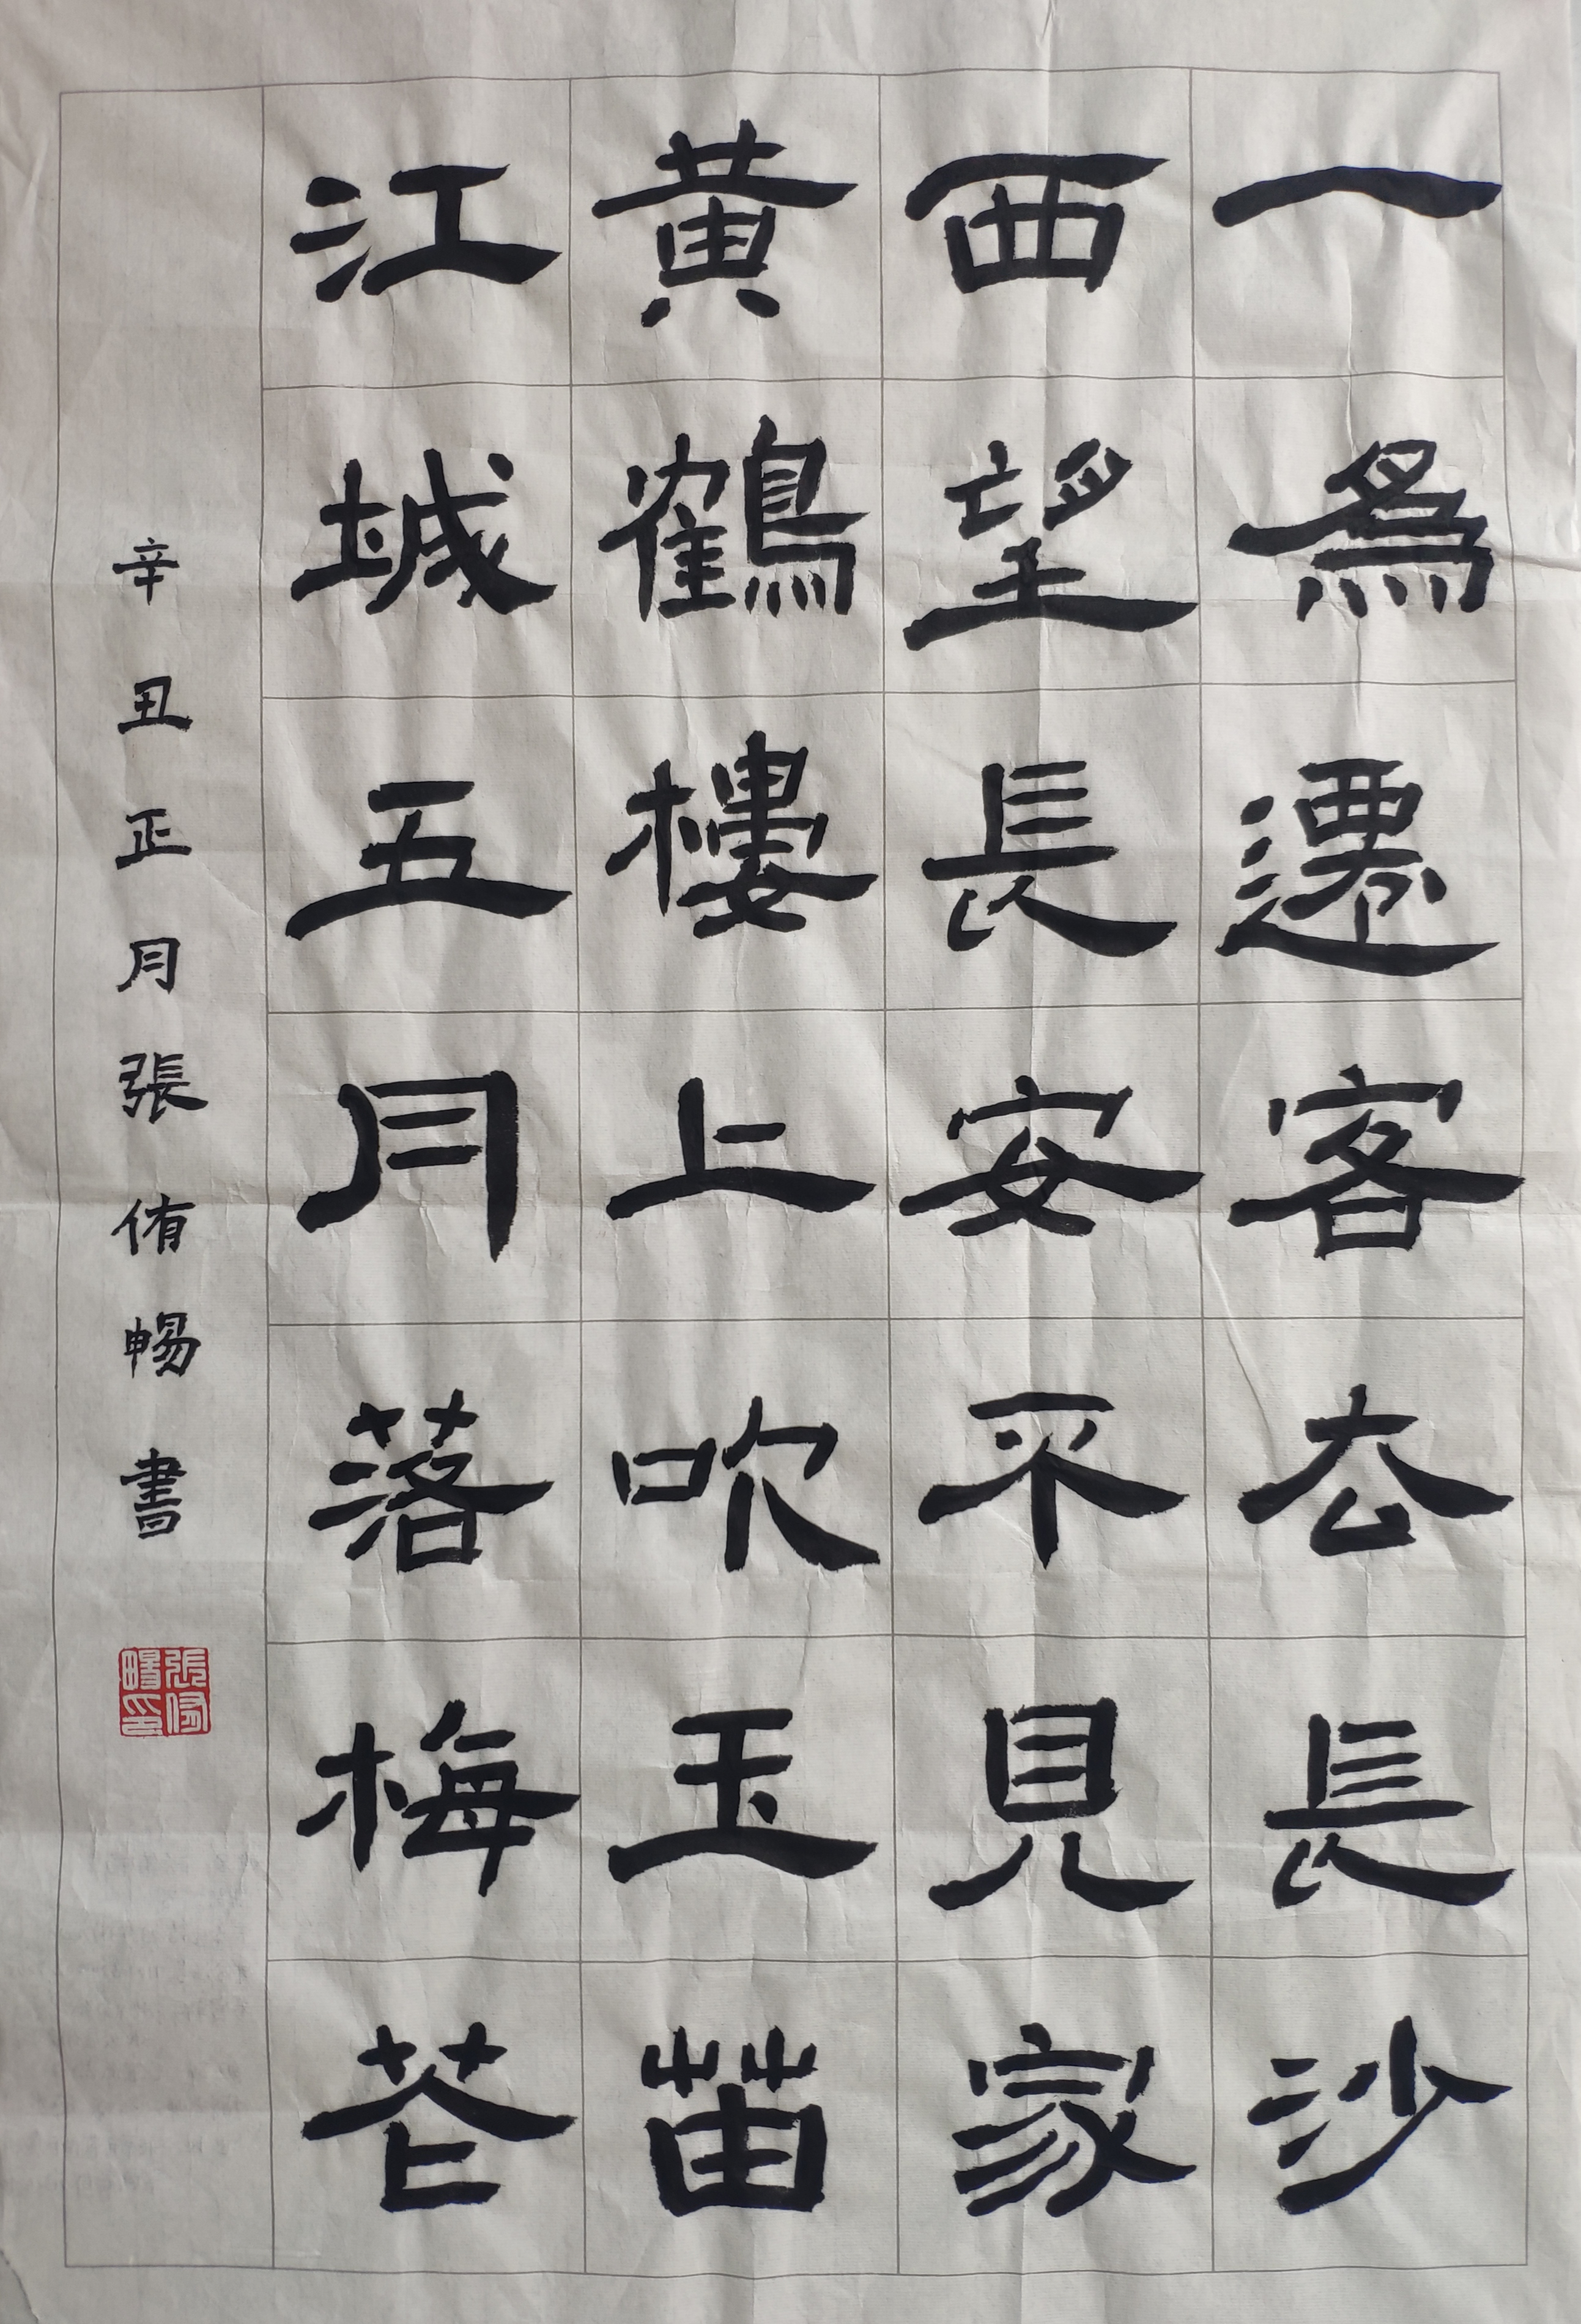 一為遷客去長沙
西望長安不見家
黃鶴樓上吹玉笛
江城五月落梅花
辛丑正月張侑暢書
張侑暢印